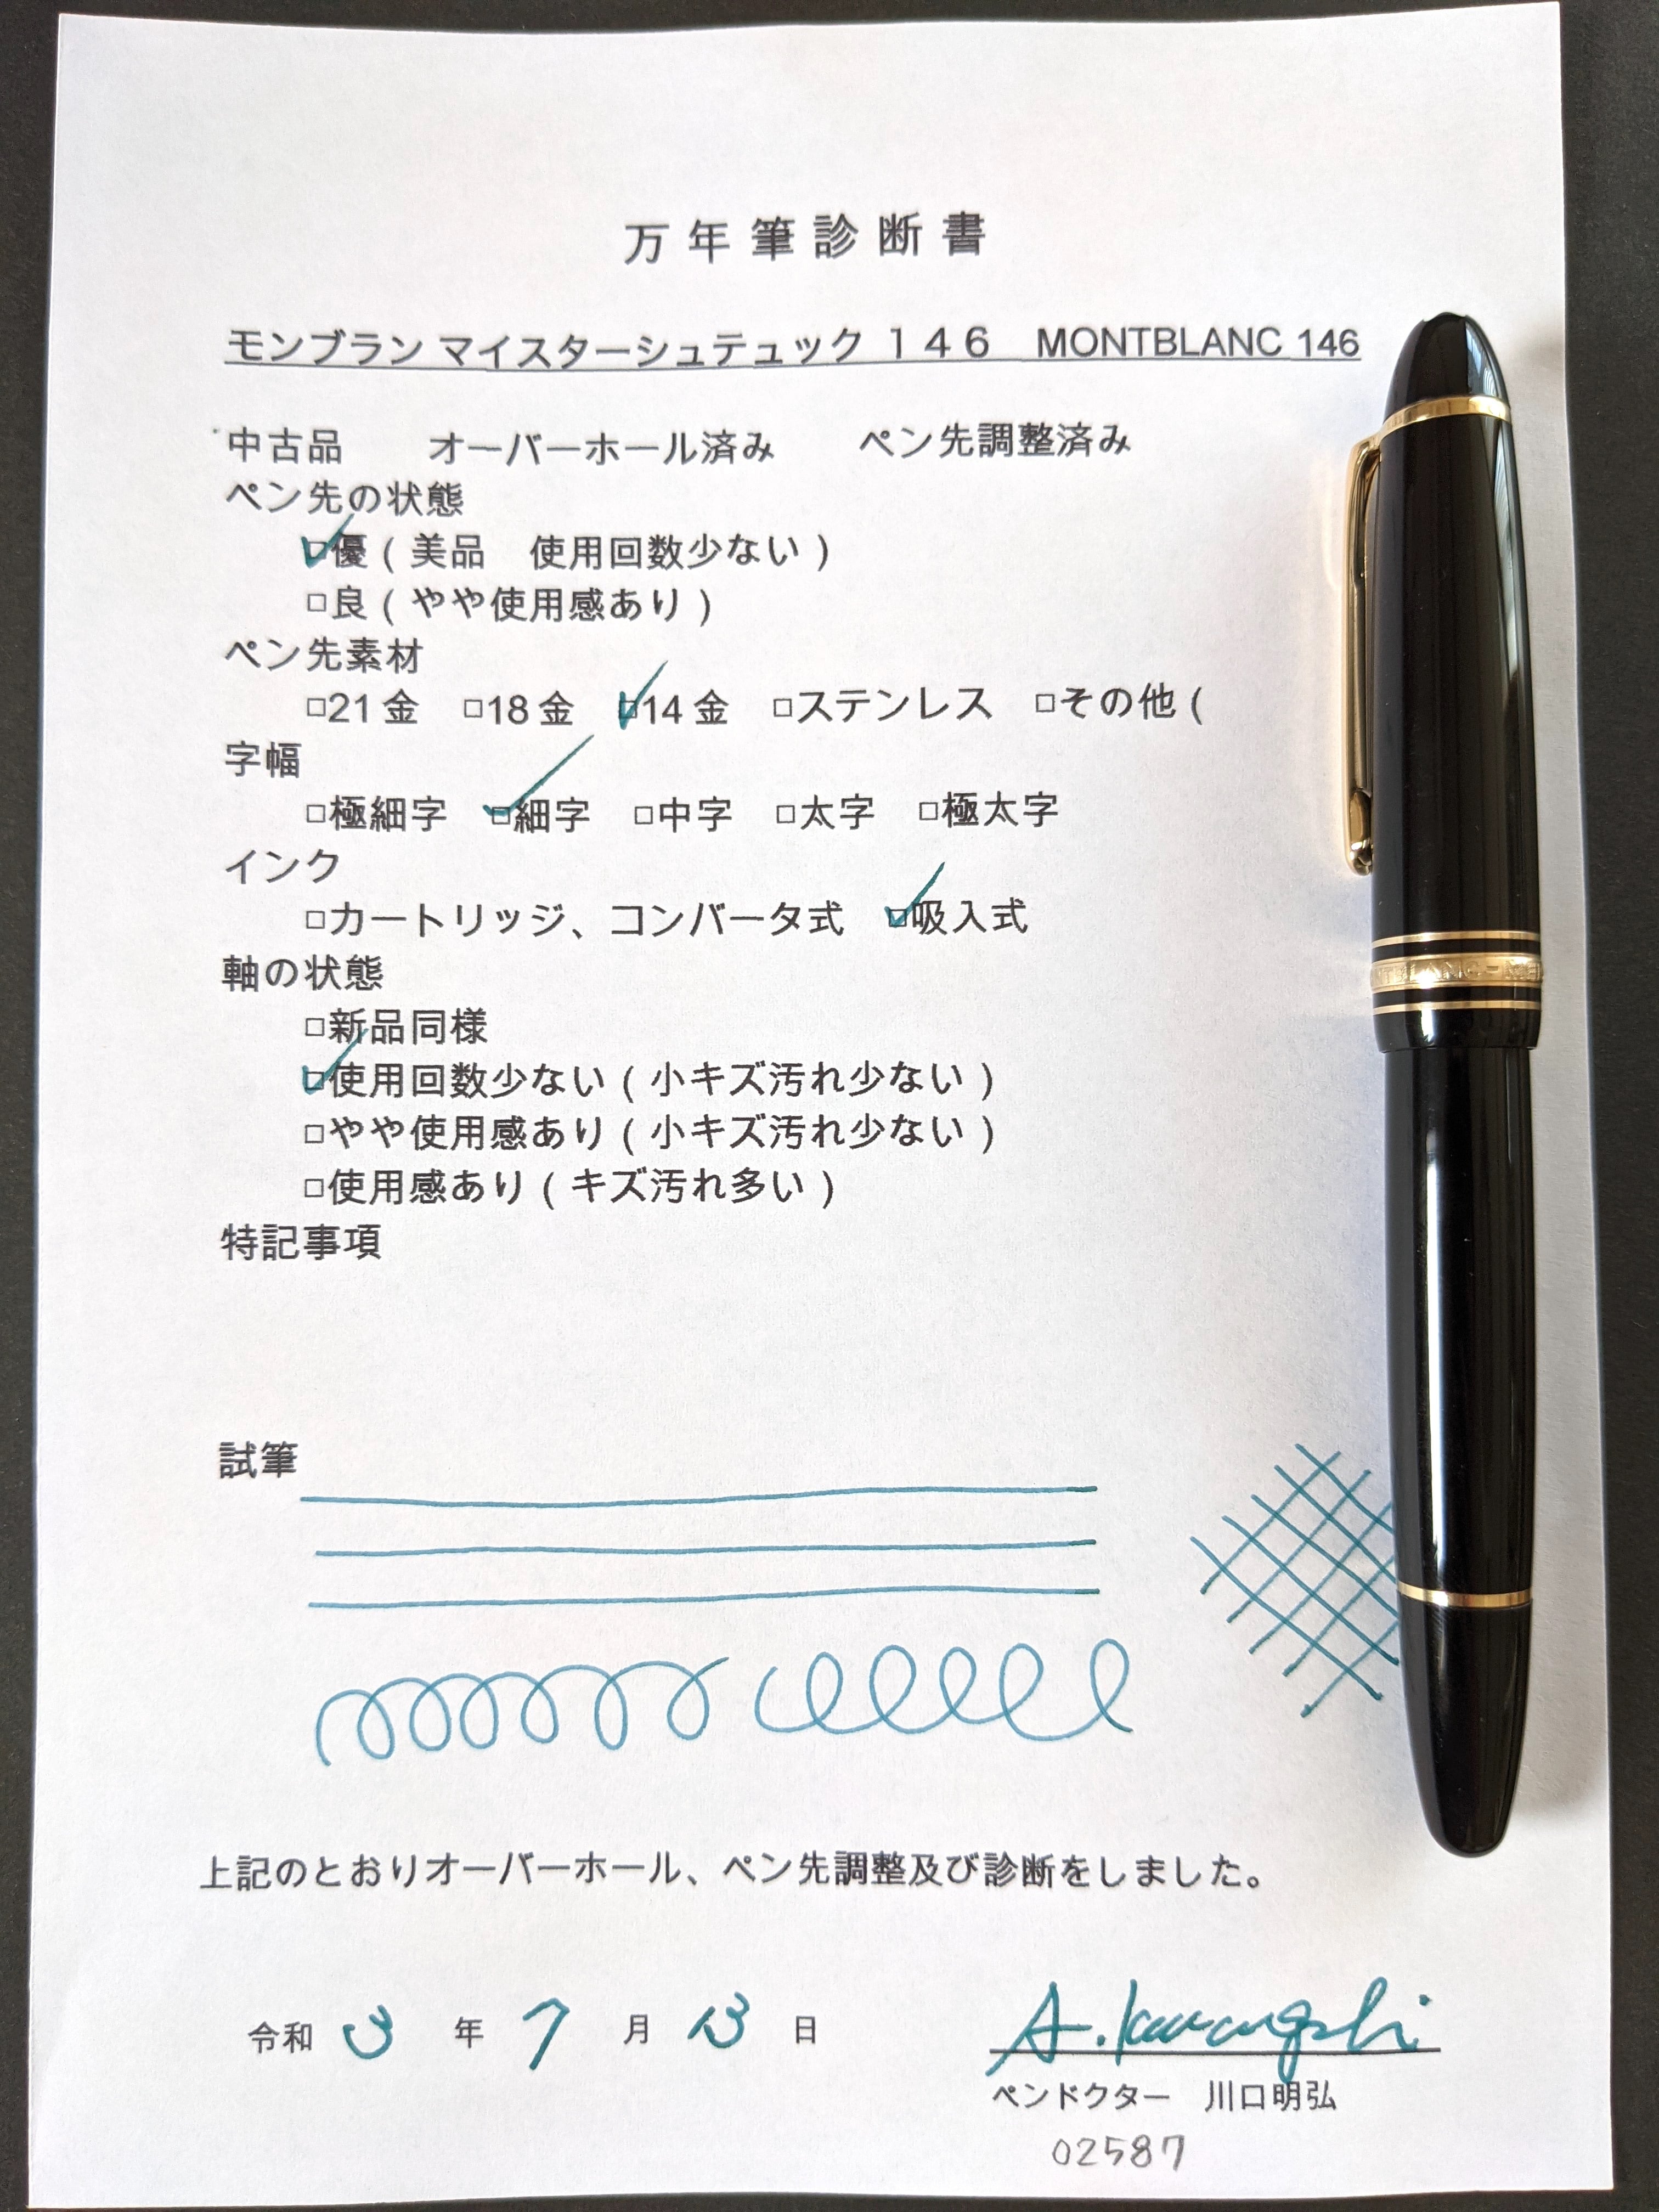 万年筆診断書
モンブラン マイスターシュテュック 146　MONTBLANC 146
中古品　オーバーホール済み　ペン先調整済み
ペン先の状態
□優(美品　使用回数少ない)
□良(やや使用感あり)
ペン先素材
□21金　□18金　□14金　□ステンレス　□その他(
字幅
□極細字　□細字　□中字　□太字　□極太字
インク
□カートリッジ、コンバータ式　□吸入式
軸の状態
□新品同様
□使用回数少ない(小キズ汚れ少ない)
□やや使用感あり(小キズ汚れ少ない)
□使用感あり(キズ汚れ多い)
特記事項
試筆
上記のとおりオーバーホール、ペン先調整及び診断をしました。
令和 3 年 7 月 13 日
A. Kawaguchi
ペンドクター　川口明弘
02587